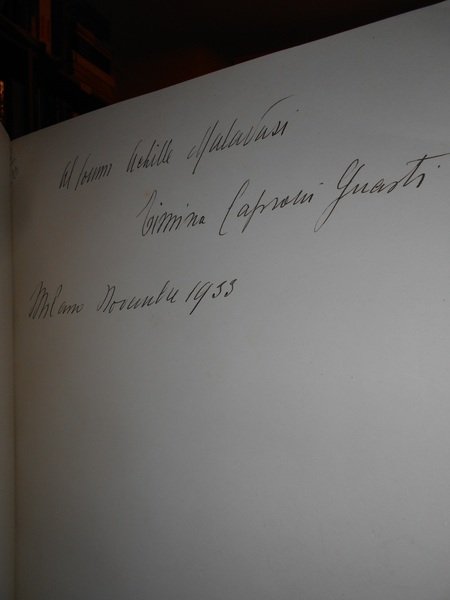 Al Comm Achille Malavasi
Timina Caproni Guasti
Milano Novembre 1933